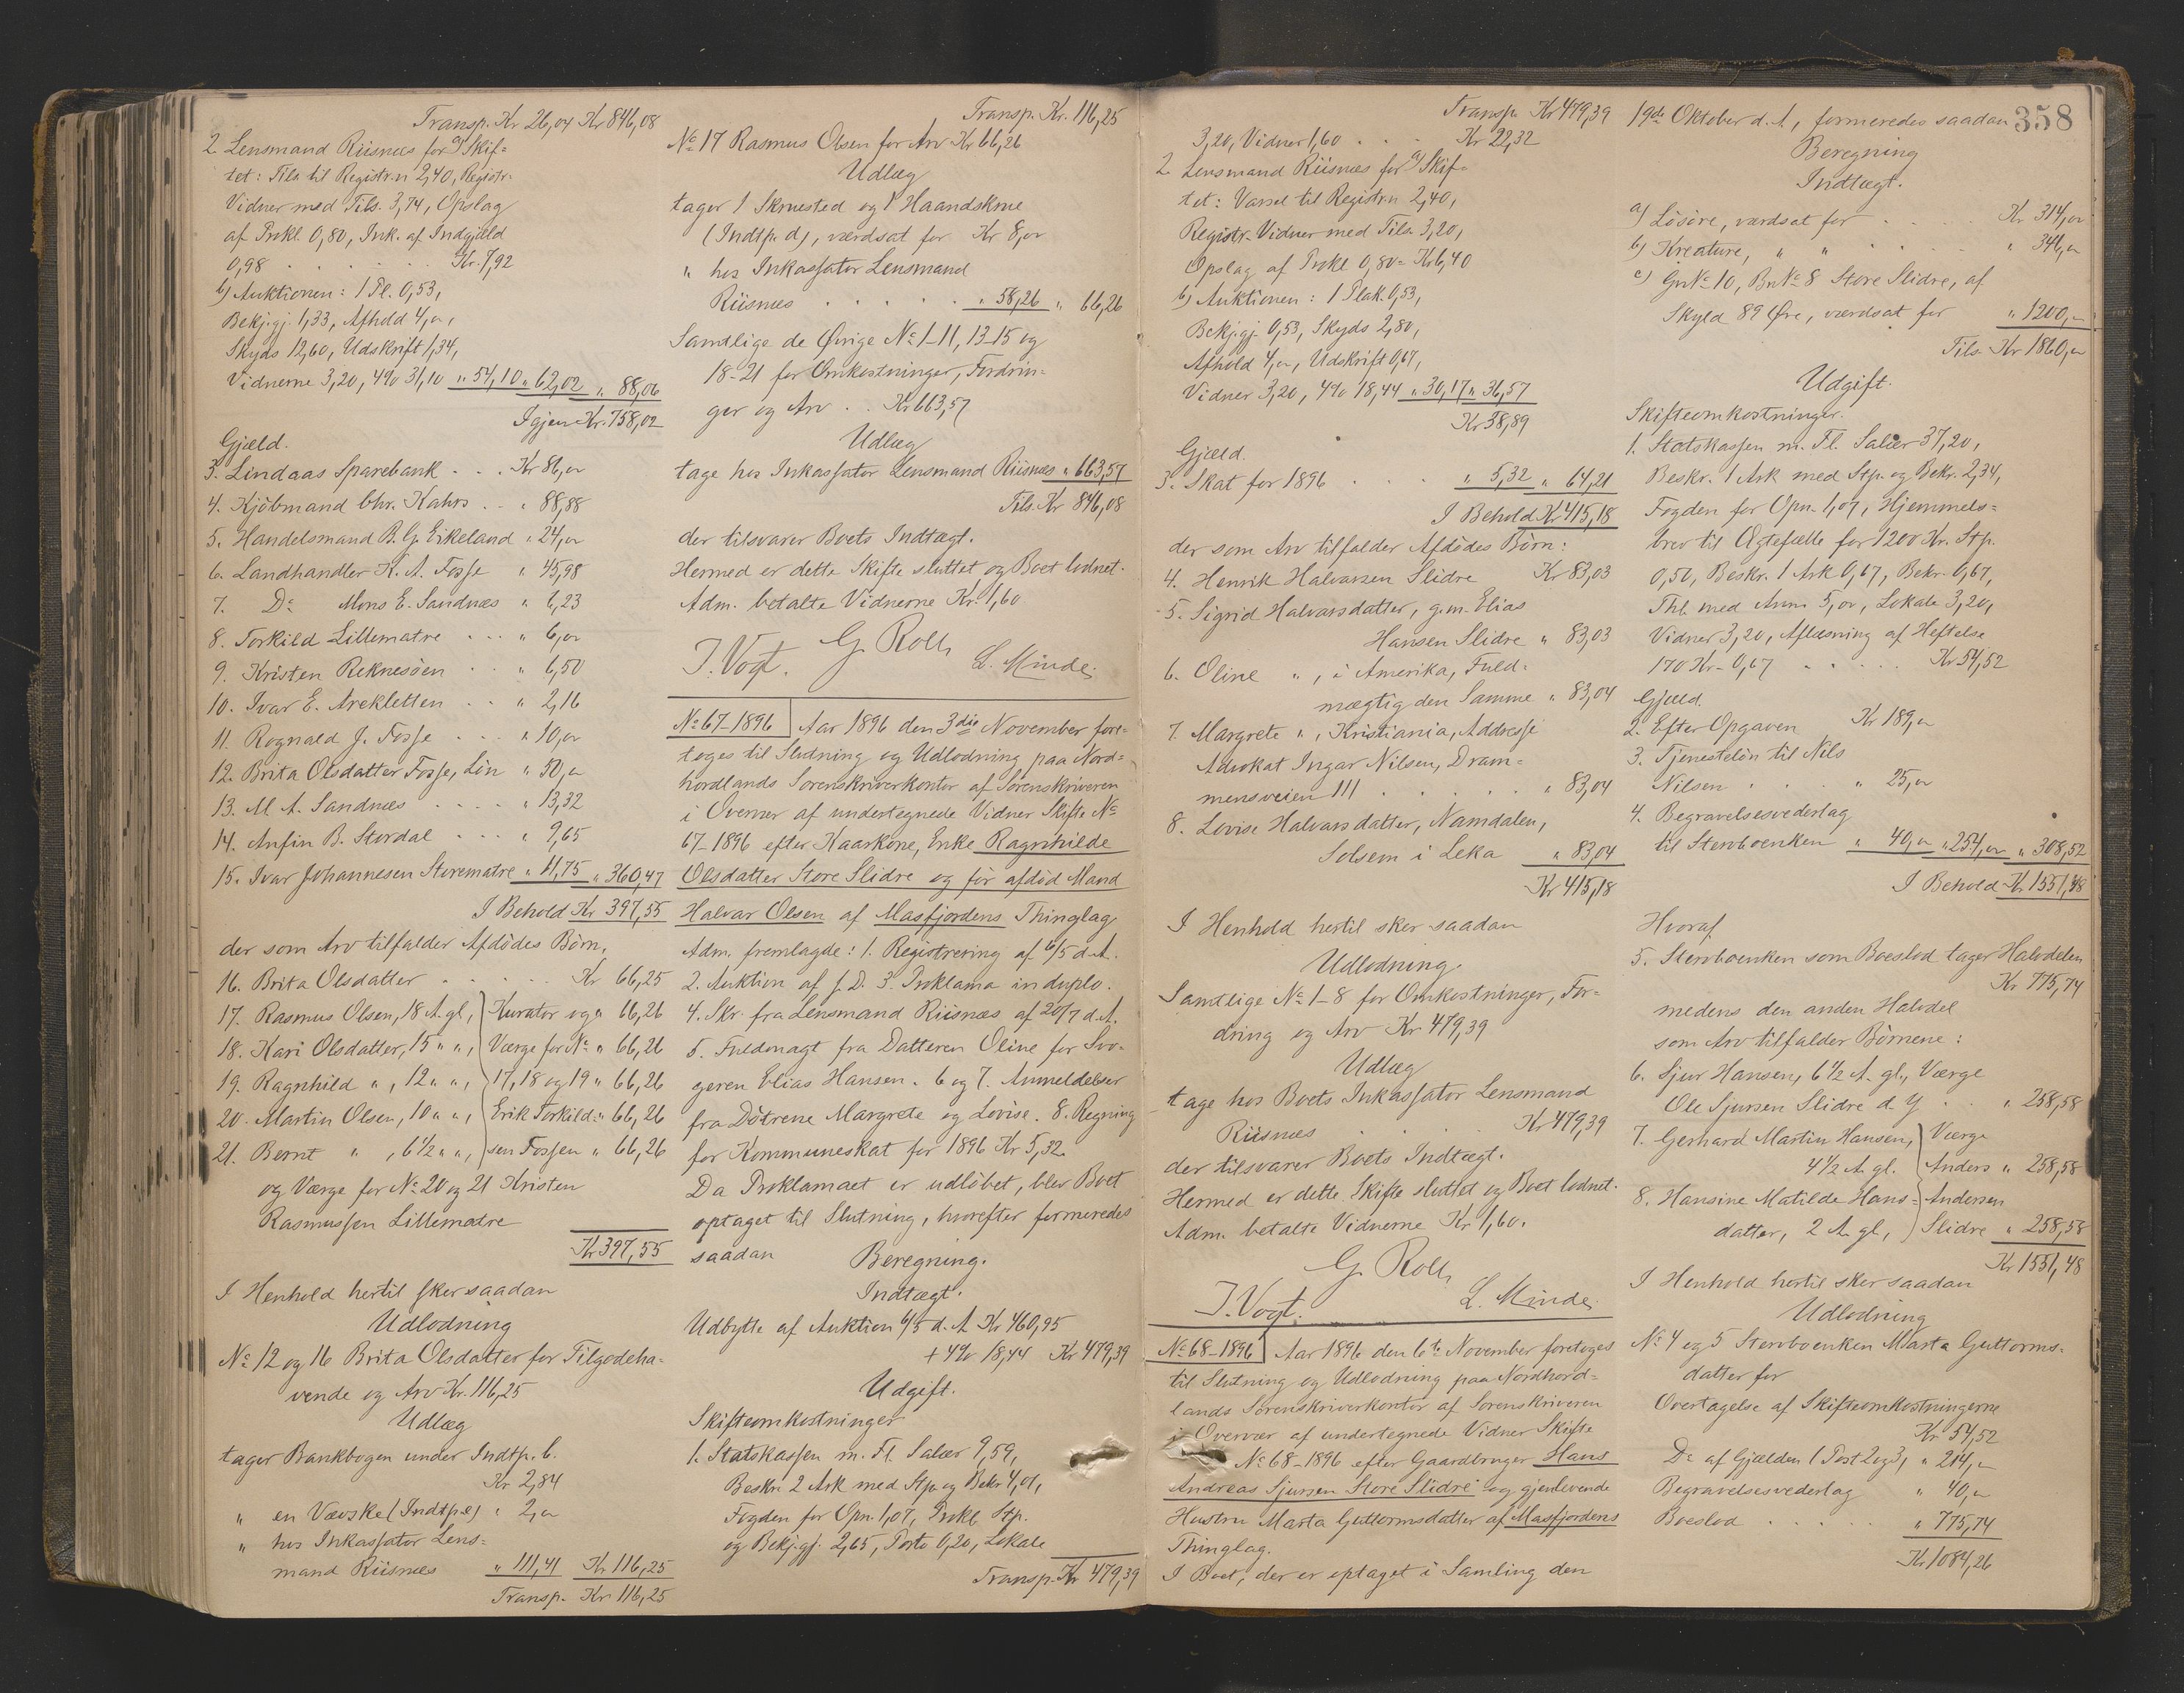 Transp. Kr 26,04 Kr 846,08
2. Lensmand Riisnæs for a) Skif=
tet: Tils. til Registr.n 2,40, Registr.
Vidner med Tils. 3,74, Opslag
af Prokl. 0,80, Ink. af Indgjæld
0,98 . . . . . Kr. 7,92
b) Auktionen: 1 Pl. 0,53,
Bekj.gj. 1,33, Afhold 4,00,
Skyds 12,60, Udskrift 1,34,
Vidnerne 3,20, 4% 31,10 " 54,10 " 62,02 " 88,06
Igjen Kr. 758,02
Gjæld.
3. Lindaas Sparebank . . . Kr 86,00
4. Kjöbmand Chr. Kahrs . . " 88,88
5. Handelsmand R. G. Eikeland " 24,00
6. Landhandler K. A. Fosse " 45,98
7. Do Mons E. Sandnæs " 6,23
8. Torkild Lillematre . . . " 6,00
9. Kristen Reknesöen . . " 6,50
10. Ivar E. Arekletten . . " 2,16
11. Rognald J. Fosse . . . " 10,00
12. Brita Olsdatter Fosse, Lön " 50,00
13. M. A. Sandnæs . . . . " 13,32
14. Anfin B. Stordal . . . " 9,65
15. Ivar Johannesen Storematre " 11,75 " 360,47
I Behold Kr 397,55
der som Arv tilfalder Afdödes Börn,
16. Brita Olsdatter . . . . Kr 66,25
17. Rasmus Olsen, 18 A. gl., Kurator og " 66,26
18. Kari Olsdatter, 15 " ", Værge for No " 66,26
19. Ragnhild ", 12 " ", 17, 18 og 19 " 66,26
20. Martin Olsen, 10 " ", Erik Torkild= " 66,26
21. Bernt " , 6 1/2 " ", sen Fossen " 66,26
og Værge for No 20 og 21 Kristen
Rasmussen Lillematre
Kr 397,55
I Henhold hertil sker saadan
Udlodning
No 12 og 16 Brita Olsdatter for Tilgodeha=
vende og Arv Kr. 116,25
Udlæg
tager Bankbogen under Indtp. b.
Kr 2,84
" en Vævske (Indtp. e) " 2,00
" hos Inkassator Lens=
mand Riisnæs " 111,41 Kr 116,25
Transp. Kr 116,25
Transp. Kr. 116,25
No 17 Rasmus Olsen for Arv Kr 66,26
Udlæg
tager 1 Skruested og 1 Haandskrue
(Indtp. d), værdsat for Kr 8,00
" hos Inkassator Lensmand
Riisnæs . . . . . " 58,26 " 66,26
Samtlige de Övrige No 1-11, 13-15 og
18-21 for Omkostninger, Fordrin=
ger og Arv . . Kr 663,57
Udlæg
tage hos Inkassator Lensmand Riisnæs " 663,57
Tils. Kr 846,08
der tilsvarer Boets Indtægt.
Hermed er dette Skifte sluttet og Boet lodnet.
Adm. betalte Vidnerne Kr. 1,60
G. Roll
J. Vogt. L. Minde.
No 67-1896 Aar 1896 den 3die November fore=
toges til Slutning og Udlodning paa Nord=
hordlands Sorenskriverkontor af Sorenskriveren
i Overvær af undertegnede Vidner Skifte No
67-1896 efter Kaarkone, Enke Ragnhilde
Olsdatter Store Slidre og för afdöd Mand
Halvar Olsen af Masfjordens Thinglag
Adm. fremlagde: 1. Registrering af 6/5 d. A.
2. Auktion af s. D. 3. Proklama in duplo.
4. Skr. fra Lensmand Riisnæs af 20/7 d. A.
5. Fuldmagt fra Datteren Oline for Svo=
geren Elias Hansen. 6 og 7. Anmeldelser
fra Döttrene Margrete og Lovise. 8. Regning
for Kommuneskat for 1896 Kr 5,32
Da Proklamaet er udlöbet, blev Boet
optaget til Slutning, hvorefter formeredes
saadan Beregning.
Indtægt.
Udbytte af Auktion 6/5 d. A. Kr 460,95
+ 4% 18,44 Kr 479,39
Udgift.
Skifteomkostninger
1. Statskassen m. Fl. Salær 9,59,
Beskr. 2 Ark med Stp. og Bekr. 4,01,
Fogden for Opn. 1,07, Prokl. Stp.
og Bekj.gj. 2,65, Porto 0,20, Lokale
Transp. Kr 479,39
Transp. Kr 479,39
3,20, Vidner 1,60 . . . Kr 22,32
2. Lensmand Riisnæs for a) Skif=
tet: Varsel til Registr.n 2,40,
Registr. Vidner med Tils. 3,20,
Opslag af Prokl. 0,80 = Kr 6,40
b) Auktionen: 1 Plak. 0,53,
Bekj.gj. 0,53, Skyds 2,80,
Afhold 4,00, Udskrift 0,67,
Vidner 3,20, 4% 18,44 " 30,17 " 36,57
Kr 58,89
Gjæld.
3. Skat for 1896 . . . . " 5,32 " 64,21
I Behold Kr 415,18
der som Arv tilfalder Afdödes Börn:
4. Henrik Halvarsen Slidre Kr 83,03
5. Sigrid Halvarsdatter, g. m. Elias
Hansen Slidre " 83,03
6. Oline ", i Amerika, Fuld=
mægtig den Samme " 83,04
7. Margrete ", Kristiania, Addresse
Advokat Ingar Nilsen, Dram=
mensveien 111 . . . . . " 83,04
8. Lovise Halvarsdatter, Namdalen,
Solsem i Leka " 83,04
Kr 415,18
I Henhold hertil sker saadan
Udlodning
Samtlige No 1-8 for Omkostninger, For=
dring og Arv Kr 479,39
Udlæg
tage hos Boets Inkassator Lensmand
Riisnæs . . . . Kr 479,39
der tilsvarer Boets Indtægt.
Hermed er dette Skifte sluttet og Boet lodnet.
Adm. betalte Vidnerne Kr 1,60.
G. Roll
J. Vogt. L. Minde.
No 68-1896 Aar 1896 den 6te November foretoges
til Slutning og Udlodning paa Nordhord=
lands Sorenskriverkontor af Sorenskriveren
i Overvær af undertegnede Vidner Skifte
No 68-1896 efter Gaardbruger Hans
Andreas Sjursen Store Slidre og gjenlevende
Hustru Marta Guttormsdatter af Masfjordens
Thinglag.
I Boet, der er optaget i Samling den
358
19de Oktober d. A., formeredes saadan
Beregning
Indtægt.
a) Lösöre, værdsat for . . . . Kr 314,00
b) Kreature, " " . . . . " 346,00
c) GnNo 10, BnNo 8 Store Slidre, af
Skyld 89 Öre, værdsat for " 1200,00
Tils. Kr 1860,00
Udgift.
Skifteomkostninger.
1. Statskassen m. Fl. Salær 37,20,
Beskr. 1 Ark med Stp. og Bekr. 2,34,
Fogden for Opn. 1,07, Hjemmels=
brev til Ægtefælle for 1200 Kr. Stp.
0,50, Beskr. 1 Ark 0,67, Bekr. 0,67,
Thl. med Anm. 5,00, Lokale 3,20,
Vidner 3,20, Aflæsning af Heftelse
170 Kr - 0,67 . . . . . Kr 54,52
Gjæld.
2. Efter Opgaven Kr 189,00
3. Tjenestelön til Nils
Nilsen . . . " 25,00
4. Begravelsesvederlag
til Stervboenken " 40,00 " 254,00 " 308,52
I Behold Kr 1551,48
Hvoraf
5. Stervboenken som Boeslod tager Halvdelen
Kr 775,74
medens den anden Halvdel
som Arv tilfalder Börnene:
6. Sjur Hansen, 6 1/2 A. gl., Værge
Ole Sjursen Slidre d. Y. . . " 258,58
7. Gerhard Martin Hansen, Værge
4 1/2 A. gl. Anders " 258,58
8. Hansine Matilde Hans= Andersen
datter, 2 A. gl., Slidre " 258,58
Kr 1551,48
I Henhold hertil sker saadan
Udlodning
No 4 og 5 Stervboenken Marta Guttorms=
datter for
Overtagelse af Skifteomkostningerne
Kr 54,52
Do af Gjælden (Post 2 og 3) " 214,00
Begravelsesvederlag " 40,00
Boeslod . . . . . " 775,74
Kr 1084,26